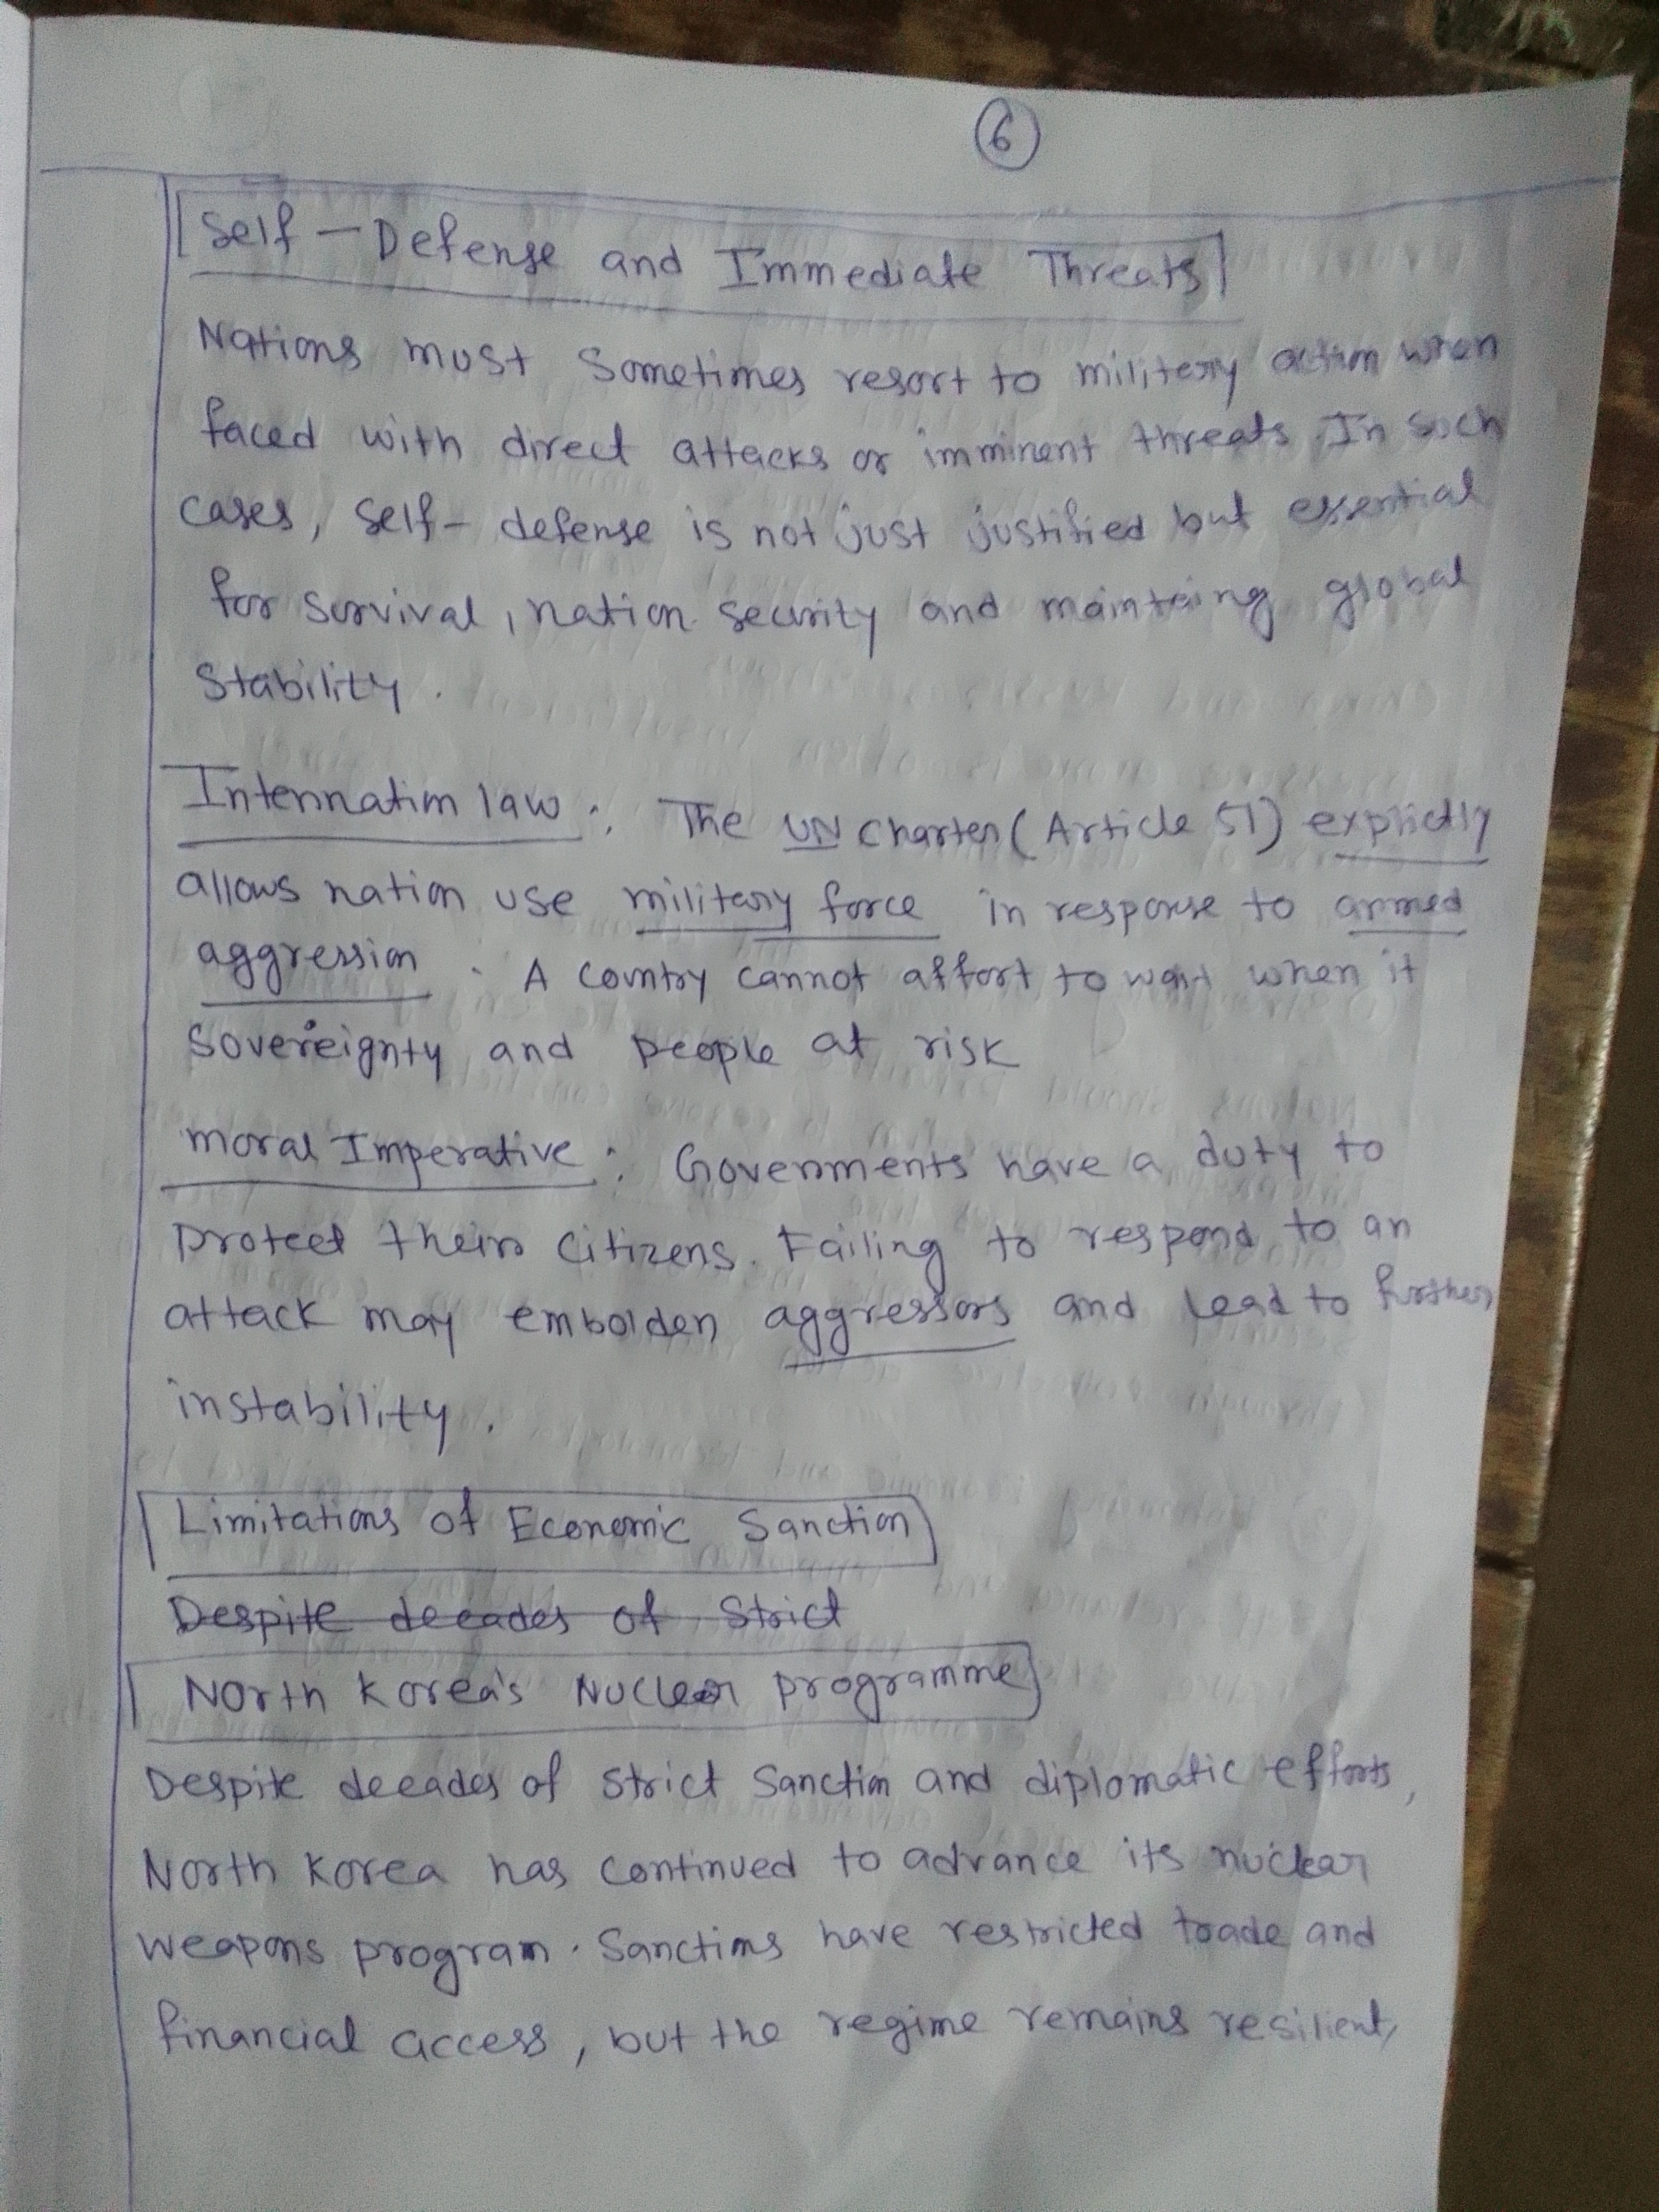 6
Self-Defense and Immediate Threats
Nations must Sometimes resort to military action when
faced with direct attacks or imminent threats. In such
cases, self-defense is not just justified but essential
for survival, nation security and maintaing global
Stability.
Internnation law: The UN Charter (Article 51) explictly
allows nation use military force in response to armed
aggression. A country cannot affort to wait when it
sovereignty and people at risk
moral Imperative: Governments have a duty to
protect their citizens. Failing to respond to an
attack may embolden aggressors and lead to further
instability.
Limitations of Economic Sanction
Despite decades of Strict
North Korea's Nuclear programme
Despite decades of strict Sanction and diplomatic efforts,
North Korea has continued to advance its nuclear
weapons program. Sanctions have restricted trade and
financial access, but the regime remains resilient,